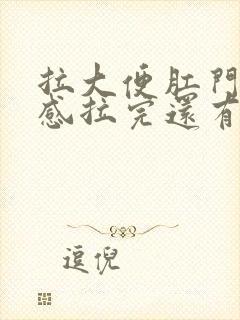 拉大便肛門
感拉完還有
逗倪